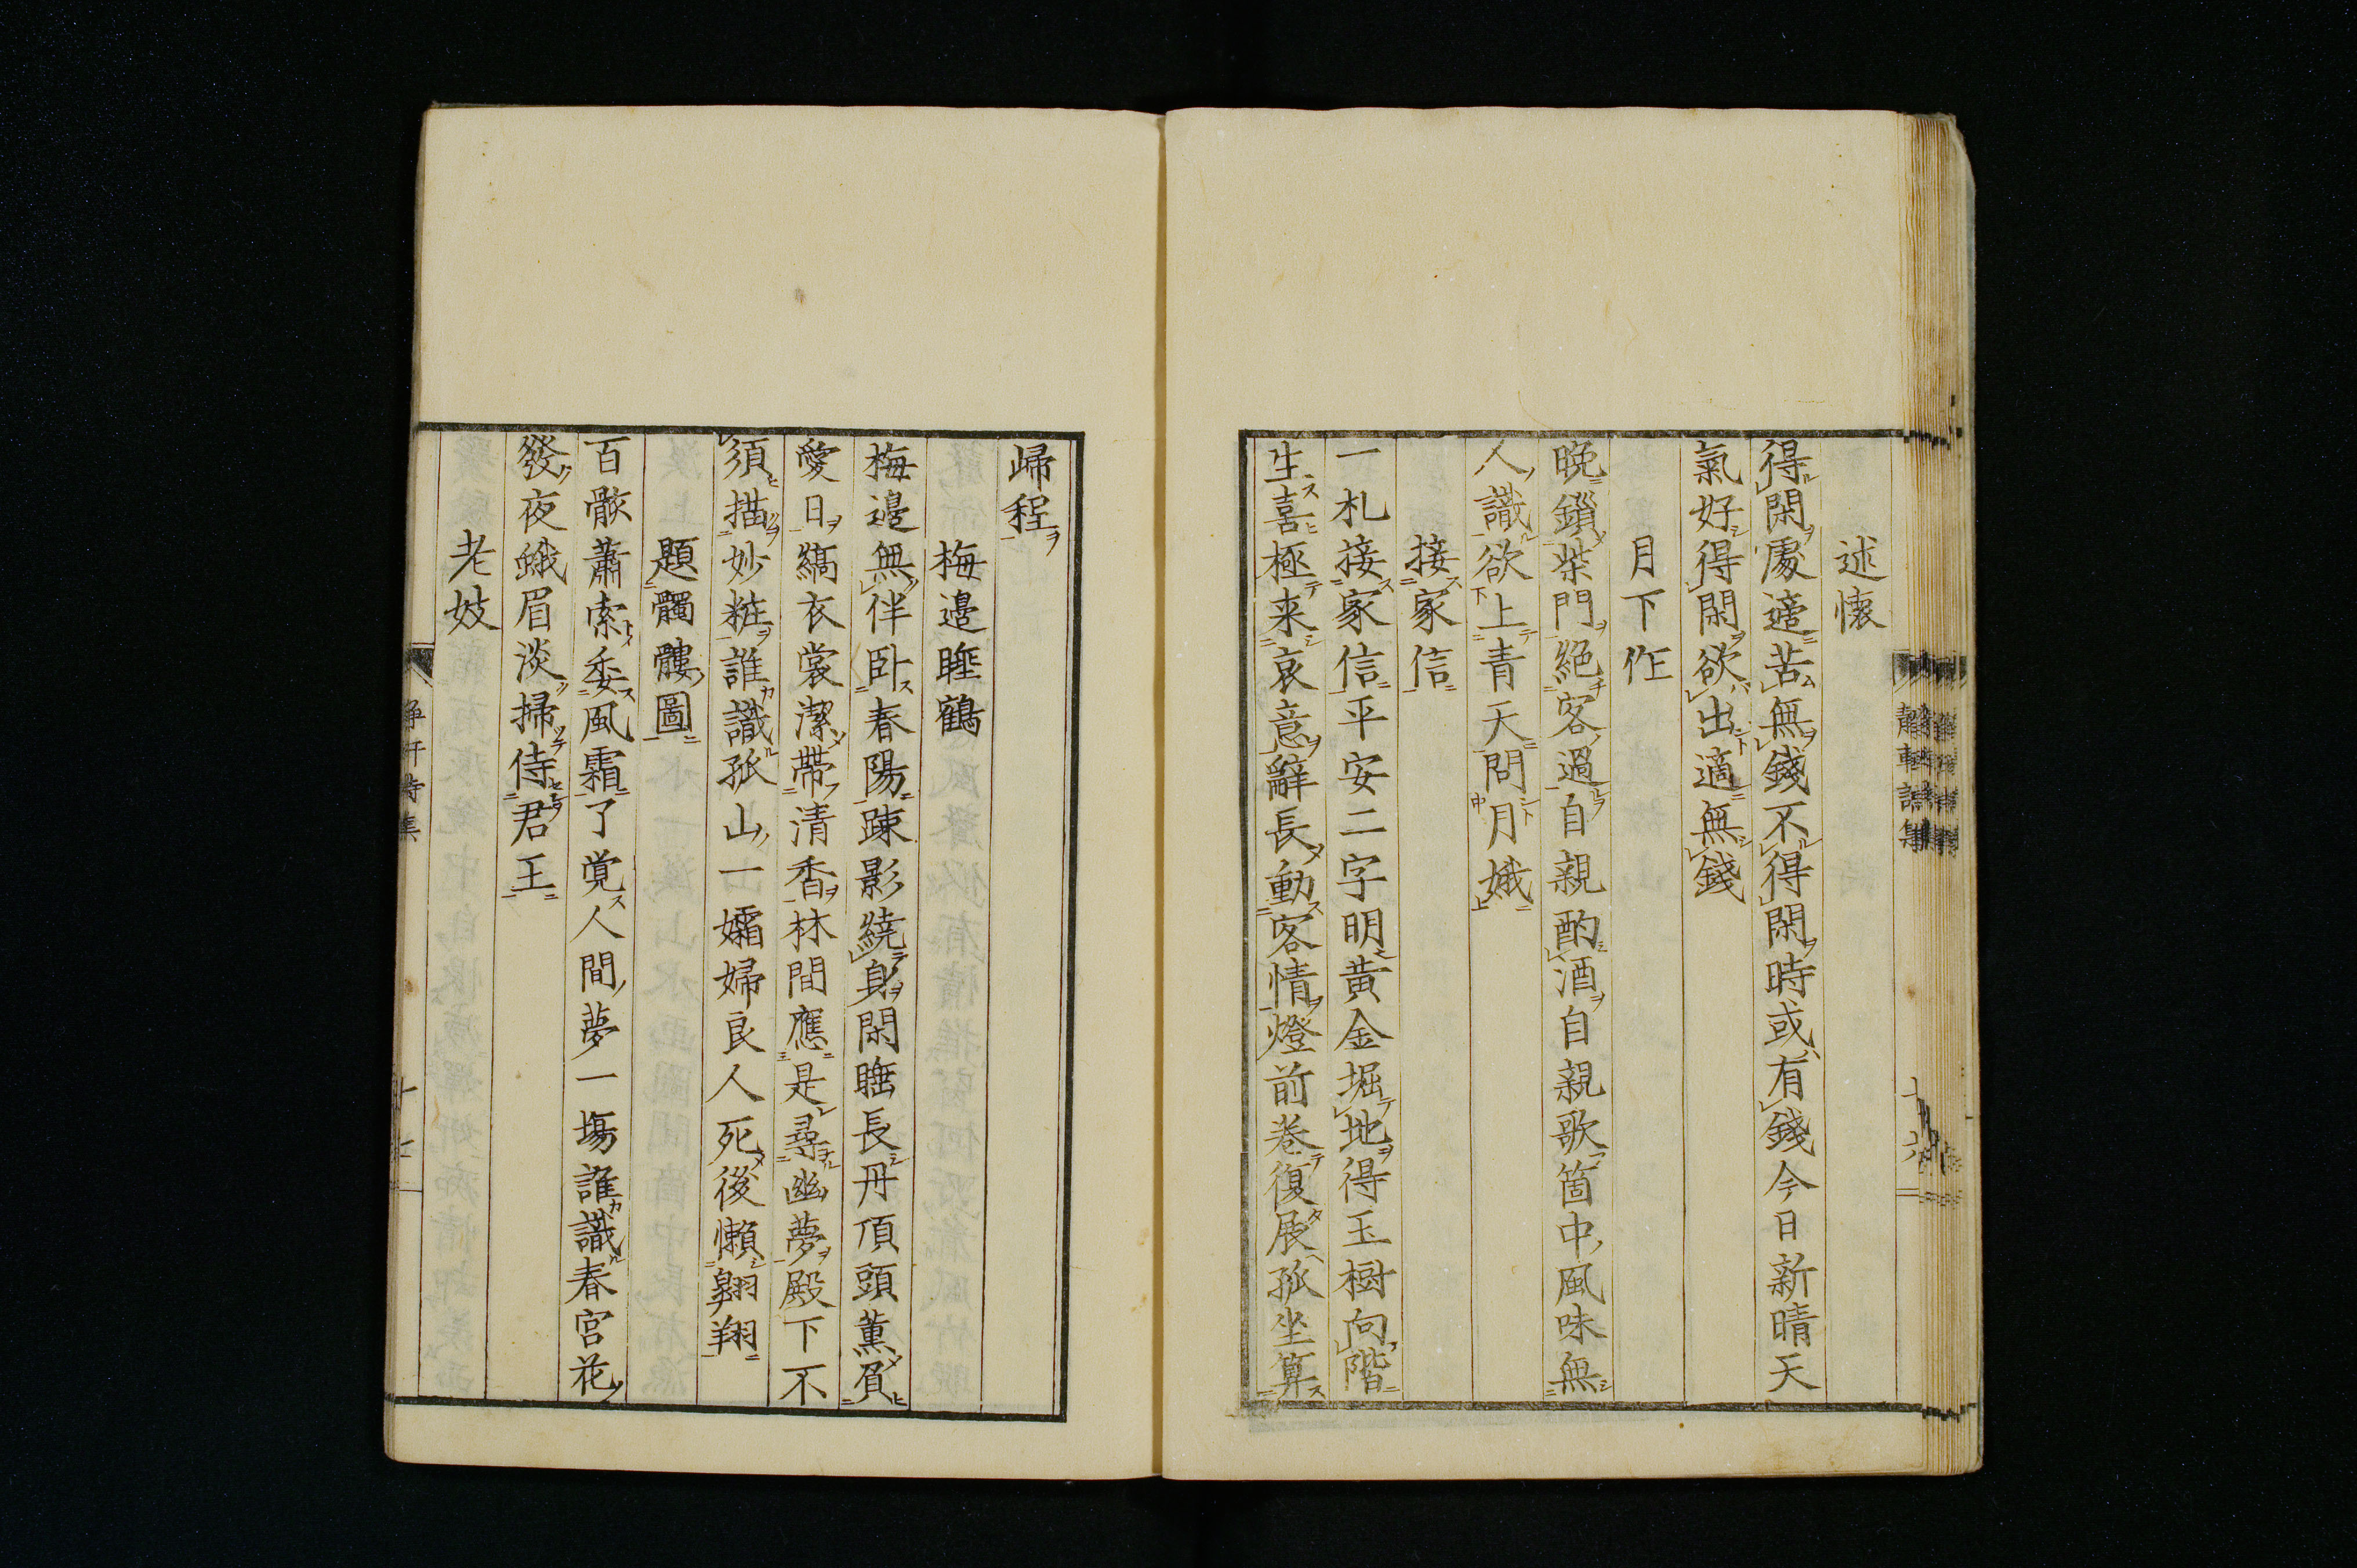 述懷
得閑處適苦無錢不得閑時或有錢今日新晴天
氣好得閑欲出適無錢
月下作
晩鎖柴門絕客過自親酌酒自親歌箇中風味無
人識欲上青天問月娥
接家信
一札接家信平安二字明黃金堀地得玉樹向階
生喜極来哀意辭長動客情燈前卷復展孤坐算
歸程
梅邉睡鶴
梅邉無伴卧春陽踈影繞身閑睡長丹頂頭薫負
愛日縞衣裳潔帶清香林間應是尋幽夢殿下不
須描妙粧誰識孤山一孀婦良人死後懶翺翔
題髑髏圖
百骸蕭索委風霜了覚人間夢一塲誰識春宮花
發夜蛾眉淡掃侍君王
老妓